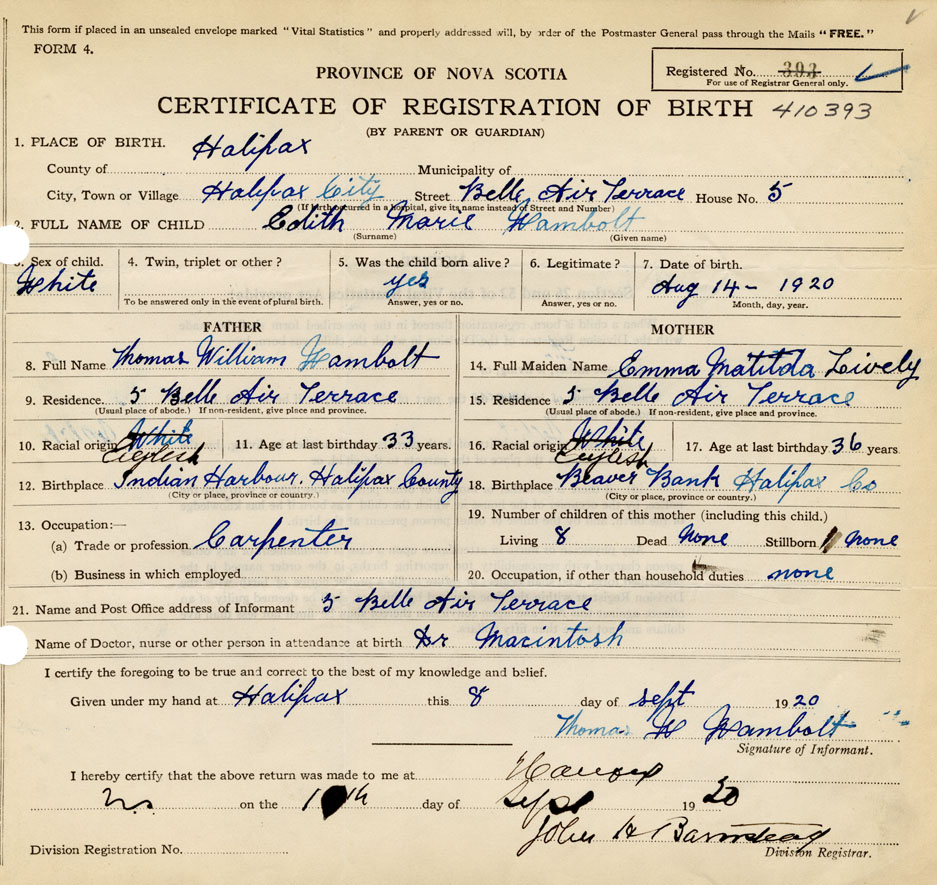 This form if placed in an unsealed envelope marked "Vital Statistics" and properly addressed will, by order of the Postmaster General pass through the Mails "FREE."
FORM 4.
Registered No. 393
For use of Registrar General only.
PROVINCE OF NOVA SCOTIA
CERTIFICATE OF REGISTRATION OF BIRTH 410393
(BY PARENT OR GUARDIAN)
1. PLACE OF BIRTH. Halifax
County of Municipality of
City, Town or Village Halifax City Street Belle Air Terrace House No. 5
(If birth occurred in a hospital, give its name instead of Street and Number)
2. FULL NAME OF CHILD Edith Marie Hambolt
(Surname) (Given name)
3. Sex of child. 4. Twin, triplet or other? 5. Was the child born alive? 6. Legitimate? 7. Date of birth.
White yes Aug 14 - 1920
To be answered only in the event of plural birth. Answer, yes or no. Answer, yes or no. Month, day, year.
FATHER
8. Full Name Thomas William Hambolt
9. Residence. 5 Belle Air Terrace
(Usual place of abode.) If non-resident, give place and province.
10. Racial origin White English 11. Age at last birthday 33 years.
12. Birthplace Indian Harbour. Halifax County
(City or place, province or country.)
13. Occupation:—
(a) Trade or profession Carpenter
(b) Business in which employed
MOTHER
14. Full Maiden Name Emma Matilda Lively
15. Residence 5 Belle Air Terrace
(Usual place of abode.) If non-resident, give place and province.
16. Racial origin White English 17. Age at last birthday 36 years
18. Birthplace Beaver Bank Halifax Co
(City or place, province or country.)
19. Number of children of this mother (including this child.)
Living 8 Dead None Stillborn None
20. Occupation, if other than household duties none
21. Name and Post Office address of Informant 5 Belle Air Terrace
Name of Doctor, nurse or other person in attendance at birth Dr Macintosh
I certify the foregoing to be true and correct to the best of my knowledge and belief.
Given under my hand at Halifax this 8 day of sept 1920
Thomas W Hambolt
Signature of Informant.
I hereby certify that the above return was made to me at Halifax
N.S. on the day of Sept 1920
John H Barnstead
Division Registration No. Division Registrar.